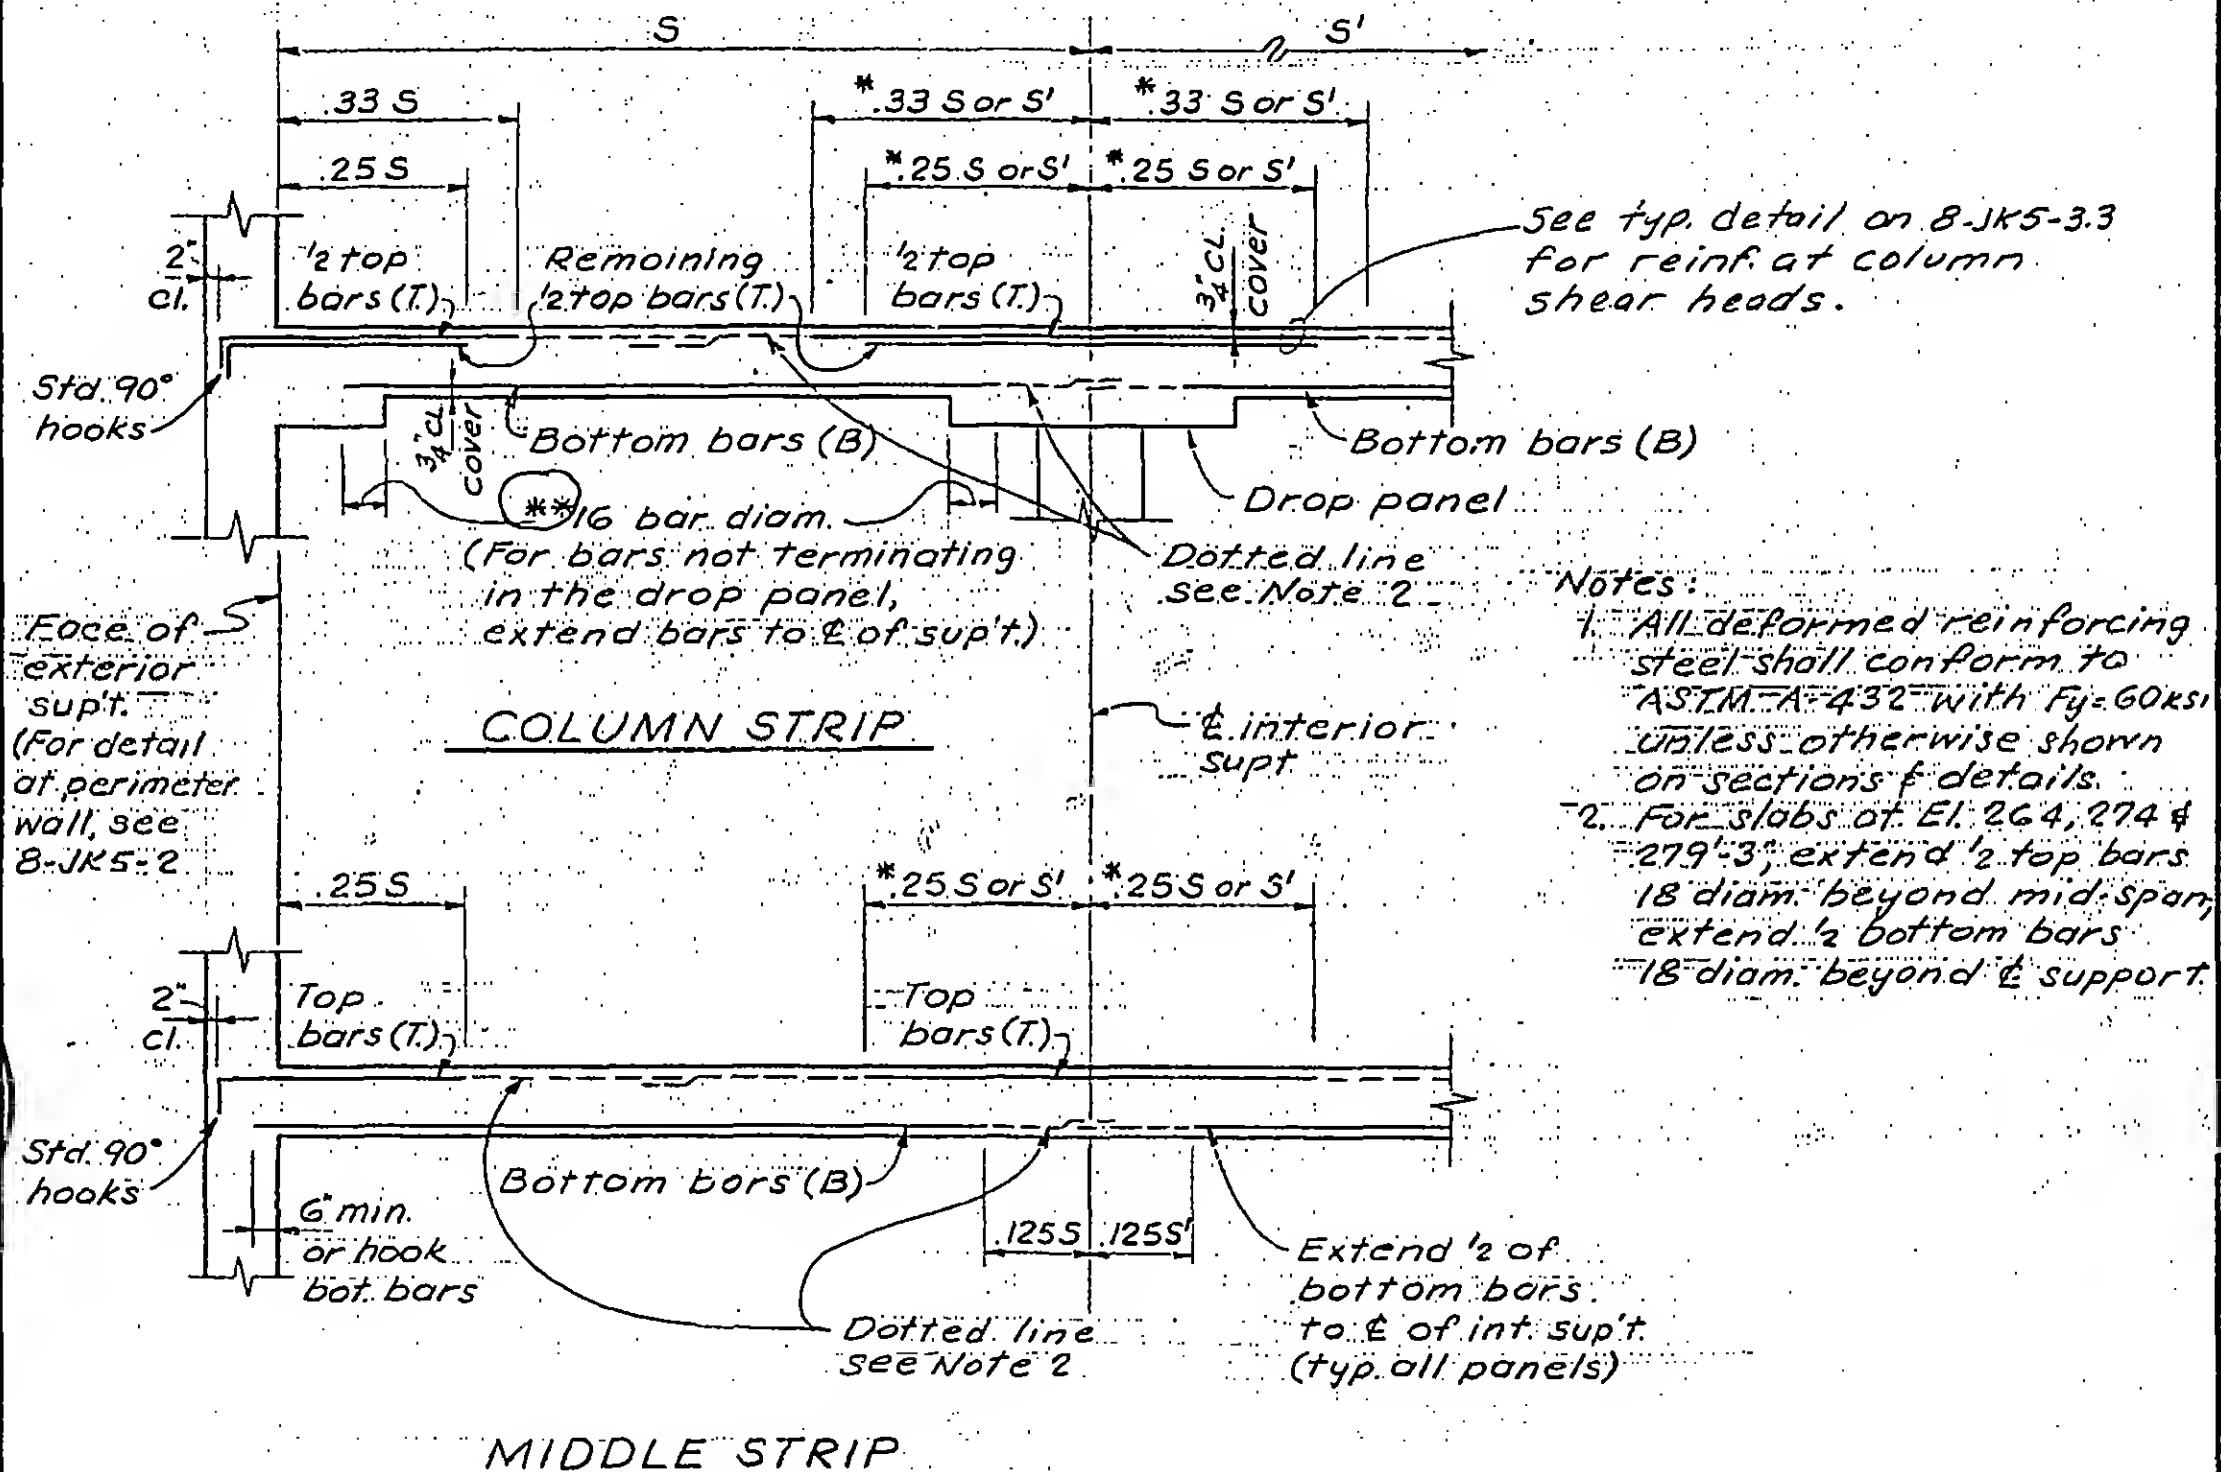 S
S'
.33 S
*.33 S or S'
*.33 S or S'
.25 S
*.25 S or S'
*.25 S or S'
2"
cl.
1/2 top
bars (T.)
Remaining
1/2 top bars (T.)
1/2 top
bars (T.)
3/4" CL.
cover
See typ. detail on 8-JK5-3.3
for reinf. at column
shear heads.
Std. 90°
hooks
3/4" CL
cover
Bottom bars (B)
Bottom bars (B)
Drop panel
**16 bar diam.
(For bars not terminating
in the drop panel,
extend bars to ℄ of sup't.)
Dotted line
see Note 2
Face of
exterior
sup't.
(For detail
at perimeter
wall, see
8-JK5-2
COLUMN STRIP
℄ interior
supt
Notes:
1. All deformed reinforcing
steel shall conform to
ASTM-A-432 with Fy=60ksi
unless otherwise shown
on sections & details.
2. For slabs at El. 264, 274 &
279'-3", extend 1/2 top bars
18 diam. beyond mid-span,
extend 1/2 bottom bars
18 diam. beyond ℄ support.
.25 S
*.25 S or S'
*.25 S or S'
2"
cl.
Top
bars (T.)
Top
bars (T.)
Std. 90°
hooks
Bottom bars (B)
6" min.
or hook
bot. bars
.125S
.125S'
Extend 1/2 of
bottom bars
to ℄ of int. sup't.
(typ. all panels)
Dotted line
see Note 2
MIDDLE STRIP